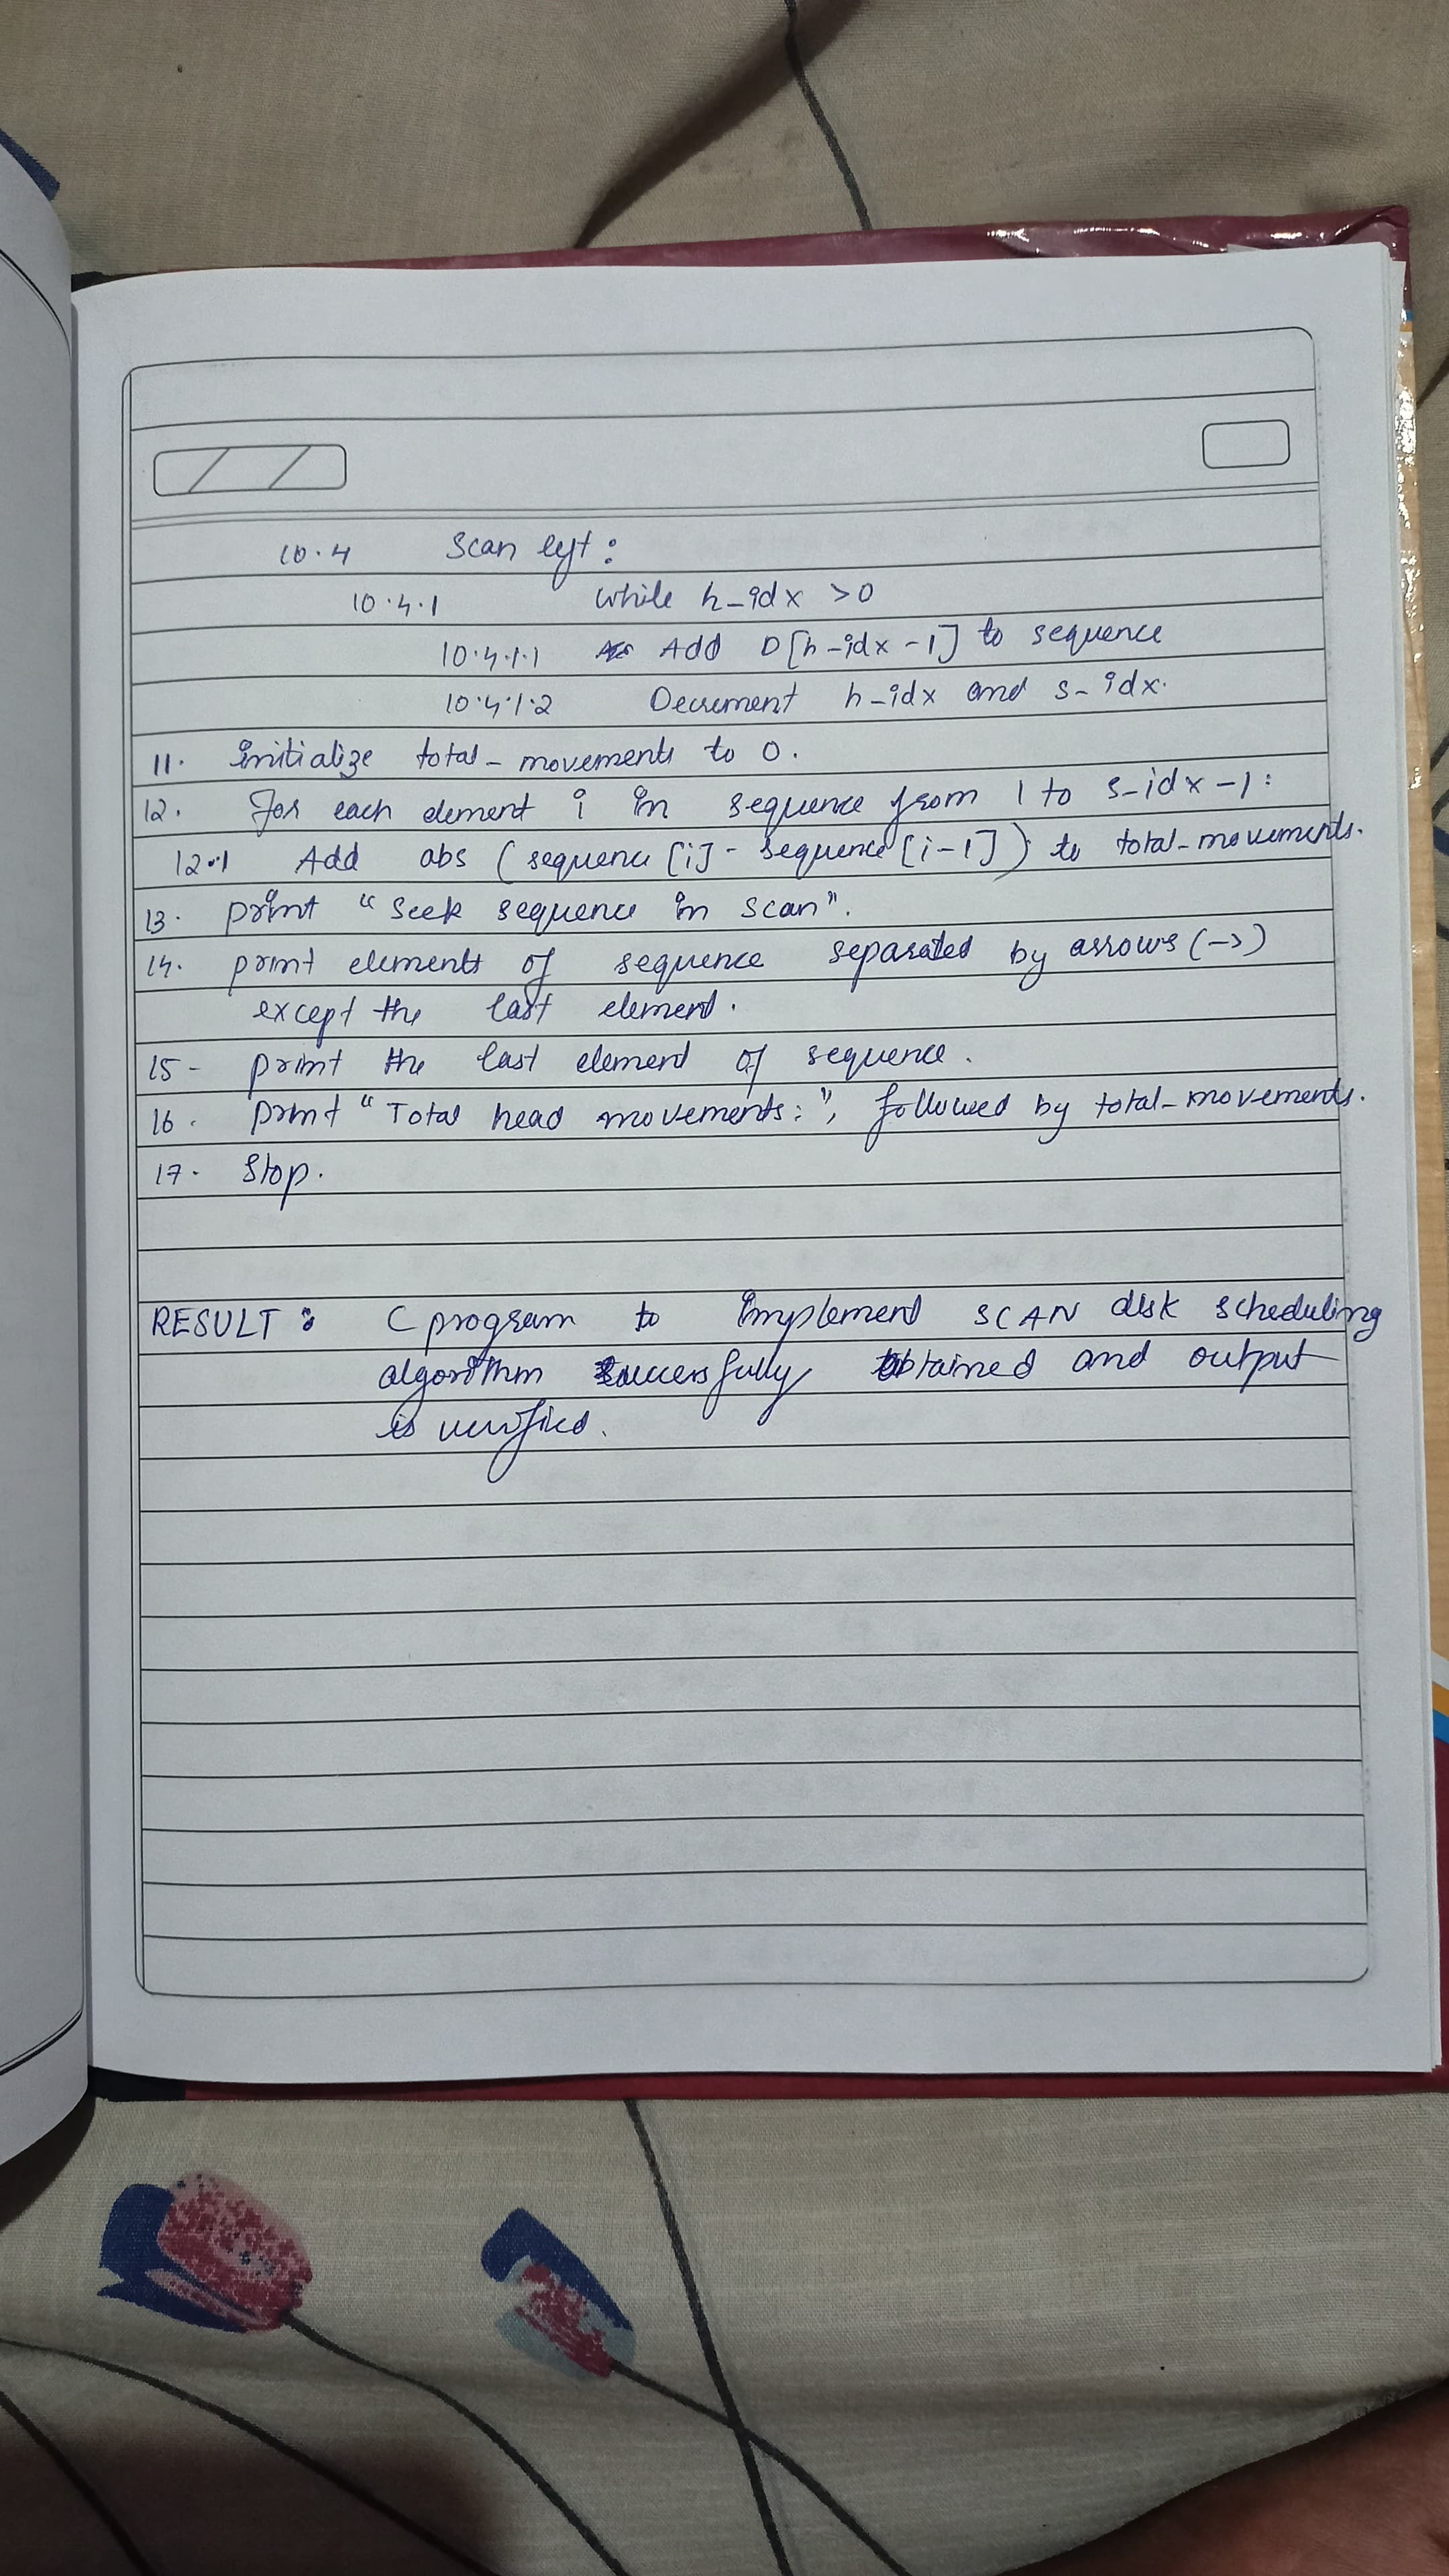 10.4 Scan left:
10.4.1 While h_idx >0
10.4.1.1 Add D[h-idx -1] to sequence
10.4.1.2 Decrement h_idx and s-idx.
11. initialize total_movements to 0.
12. For each element i in sequence from 1 to s-idx-1:
12.1 Add abs (sequence [i] - sequence [i-1]) to total-movements.
13. print "Seek sequence in Scan".
14. print elements of sequence separated by arrows (->)
except the last element.
15- print the last element of sequence.
16. print "Total head movements:", followed by total-movements.
17. Stop.
RESULT: C program to implement SCAN disk scheduling
algorithm successfully obtained and output
is verified.